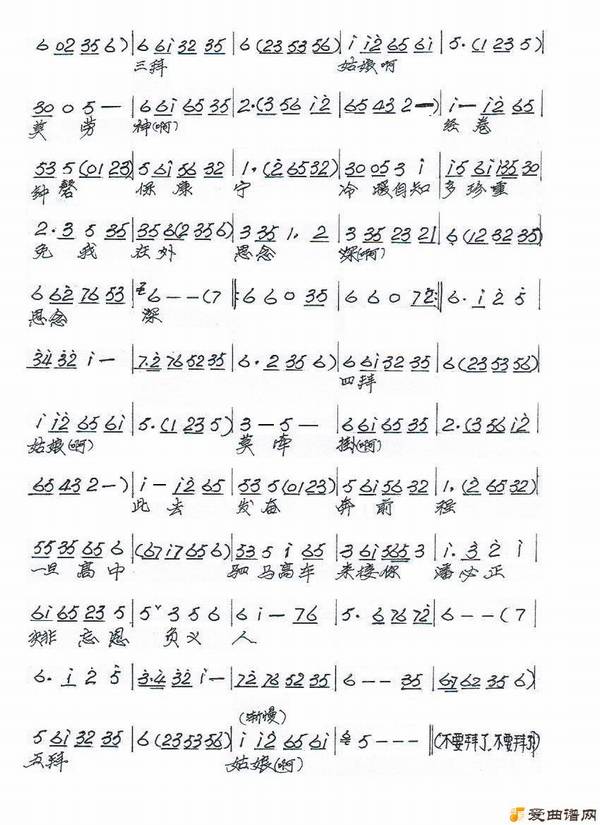 6 02 35 6) | 6 6i 32 35 | 6 (23 53 56) | i i2 65 6i | 5· (1 23 5) |
三拜 姑娘啊
30 0 5 — | 6 6i 65 35 | 2· (3 56 i2 | 65 43 2 —) | i — i2 65 |
莫 劳 神(啊) 经 卷
53 5 (01 23) | 5 6i 56 32 | 1, (2 65 32) | 30 05 3 i | i5 6i 35 30 |
钟磬 保康 宁 冷 暖自知 多珍重
2· 3 5 35 | 35 6 (2 35 6) | 3 35 1, 2 | 3 35 23 21 | 6 (12 32 35) |
免 我 在外 思念 深(啊)
6 62 76 53 | 6 — — (7 ‖: 6 6 0 35 | 6 6 0 72 :‖ 6· i 2 5 |
思念 深
34 32 i — | 7·2 76 52 35 | 6· 2 35 6) | 6 6i 32 35 | 6 (23 53 56) |
四拜
i i2 65 6i | 5· (1 23 5) | 3 — 5 — | 6 6i 65 35 | 2· (3 56 i2 |
姑娘(啊) 莫 牵 挂(啊)
65 43 2 —) | i — i2 65 | 53 5 (01 23) | 5 6i 56 32 | 1, (2 65 32) |
此 去 发奋 奔 前 程
55 35 65 6 | (67 i7 65 6) | 53 5 i 65 | 3 6i 565 3 | i· 3 2 i |
一旦 高 中 驷马高车 来接你 潘必正
6i 65 23 5 | 5ˇ 3 5 6 | 6 i — 76 | 5· 6 76 72 | 6 — — (7 |
非 忘恩 负义 人
6· i 2 5 | 3·4 32 i — | 72 76 52 35 | 6 — — 35 | 67 62 35 6) |
(渐慢)
5 6i 32 35 | 6 (23 53 56) | i i2 65 6i | 5 — — — ‖ (不要拜了,不要拜了)
五拜 姑娘(啊)
爱曲谱网